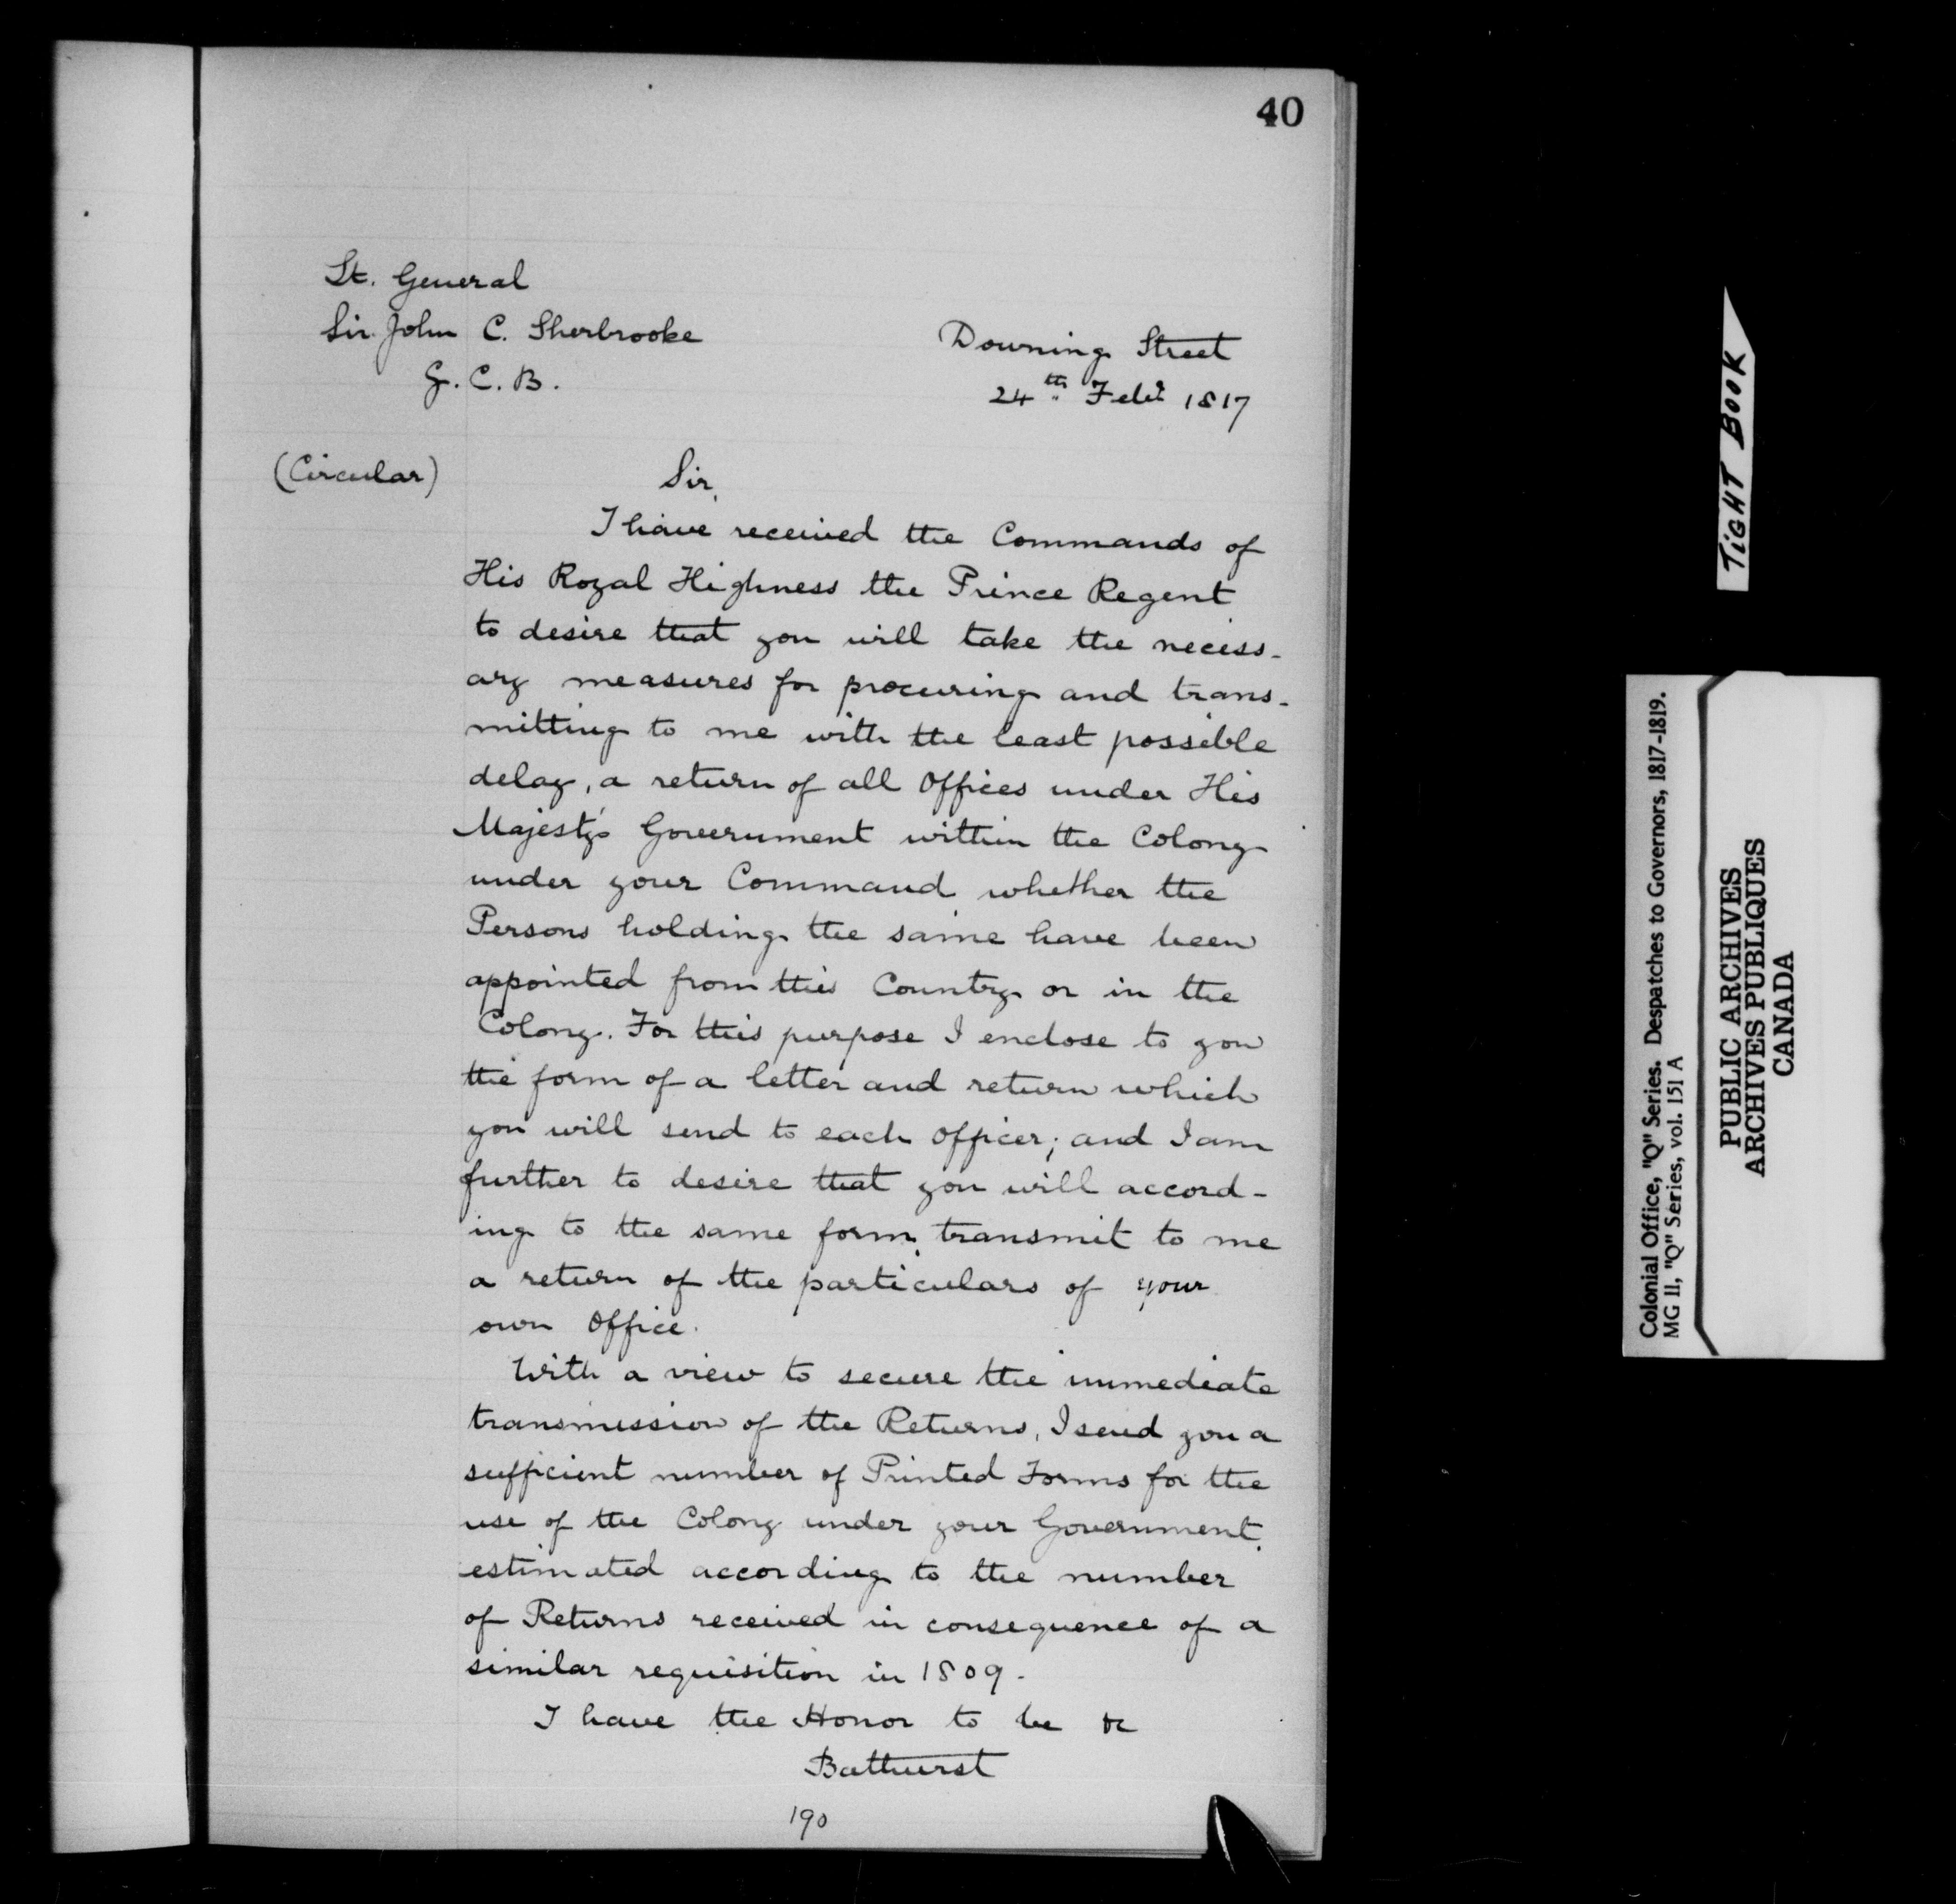 40
Lt. General
Sir John C. Sherbrooke
G. C. B.
Downing Street
24th Feby 1817
(Circular)
Sir,
I have received the Commands of
His Royal Highness the Prince Regent
to desire that you will take the necess-
ary measures for procuring and trans-
mitting to me with the least possible
delay, a return of all Offices under His
Majesty's Government within the Colony
under your Command whether the
Persons holding the same have been
appointed from this Country or in the
Colony. For this purpose I enclose to you
the form of a letter and return which
you will send to each Officer; and I am
further to desire that you will accord-
ing to the same form, transmit to me
a return of the particulars of your
own Office.
With a view to secure the immediate
transmission of the Returns, I send you a
sufficient number of Printed Forms for the
use of the Colony under your Government,
estimated according to the number
of Returns received in consequence of a
similar requisition in 1809.
I have the Honor to be &c
Bathurst
190
TIGHT BOOK
Colonial Office, "Q" Series. Despatches to Governors, 1817-1819.
MG 11, "Q" Series, vol. 151 A
PUBLIC ARCHIVES
ARCHIVES PUBLIQUES
CANADA